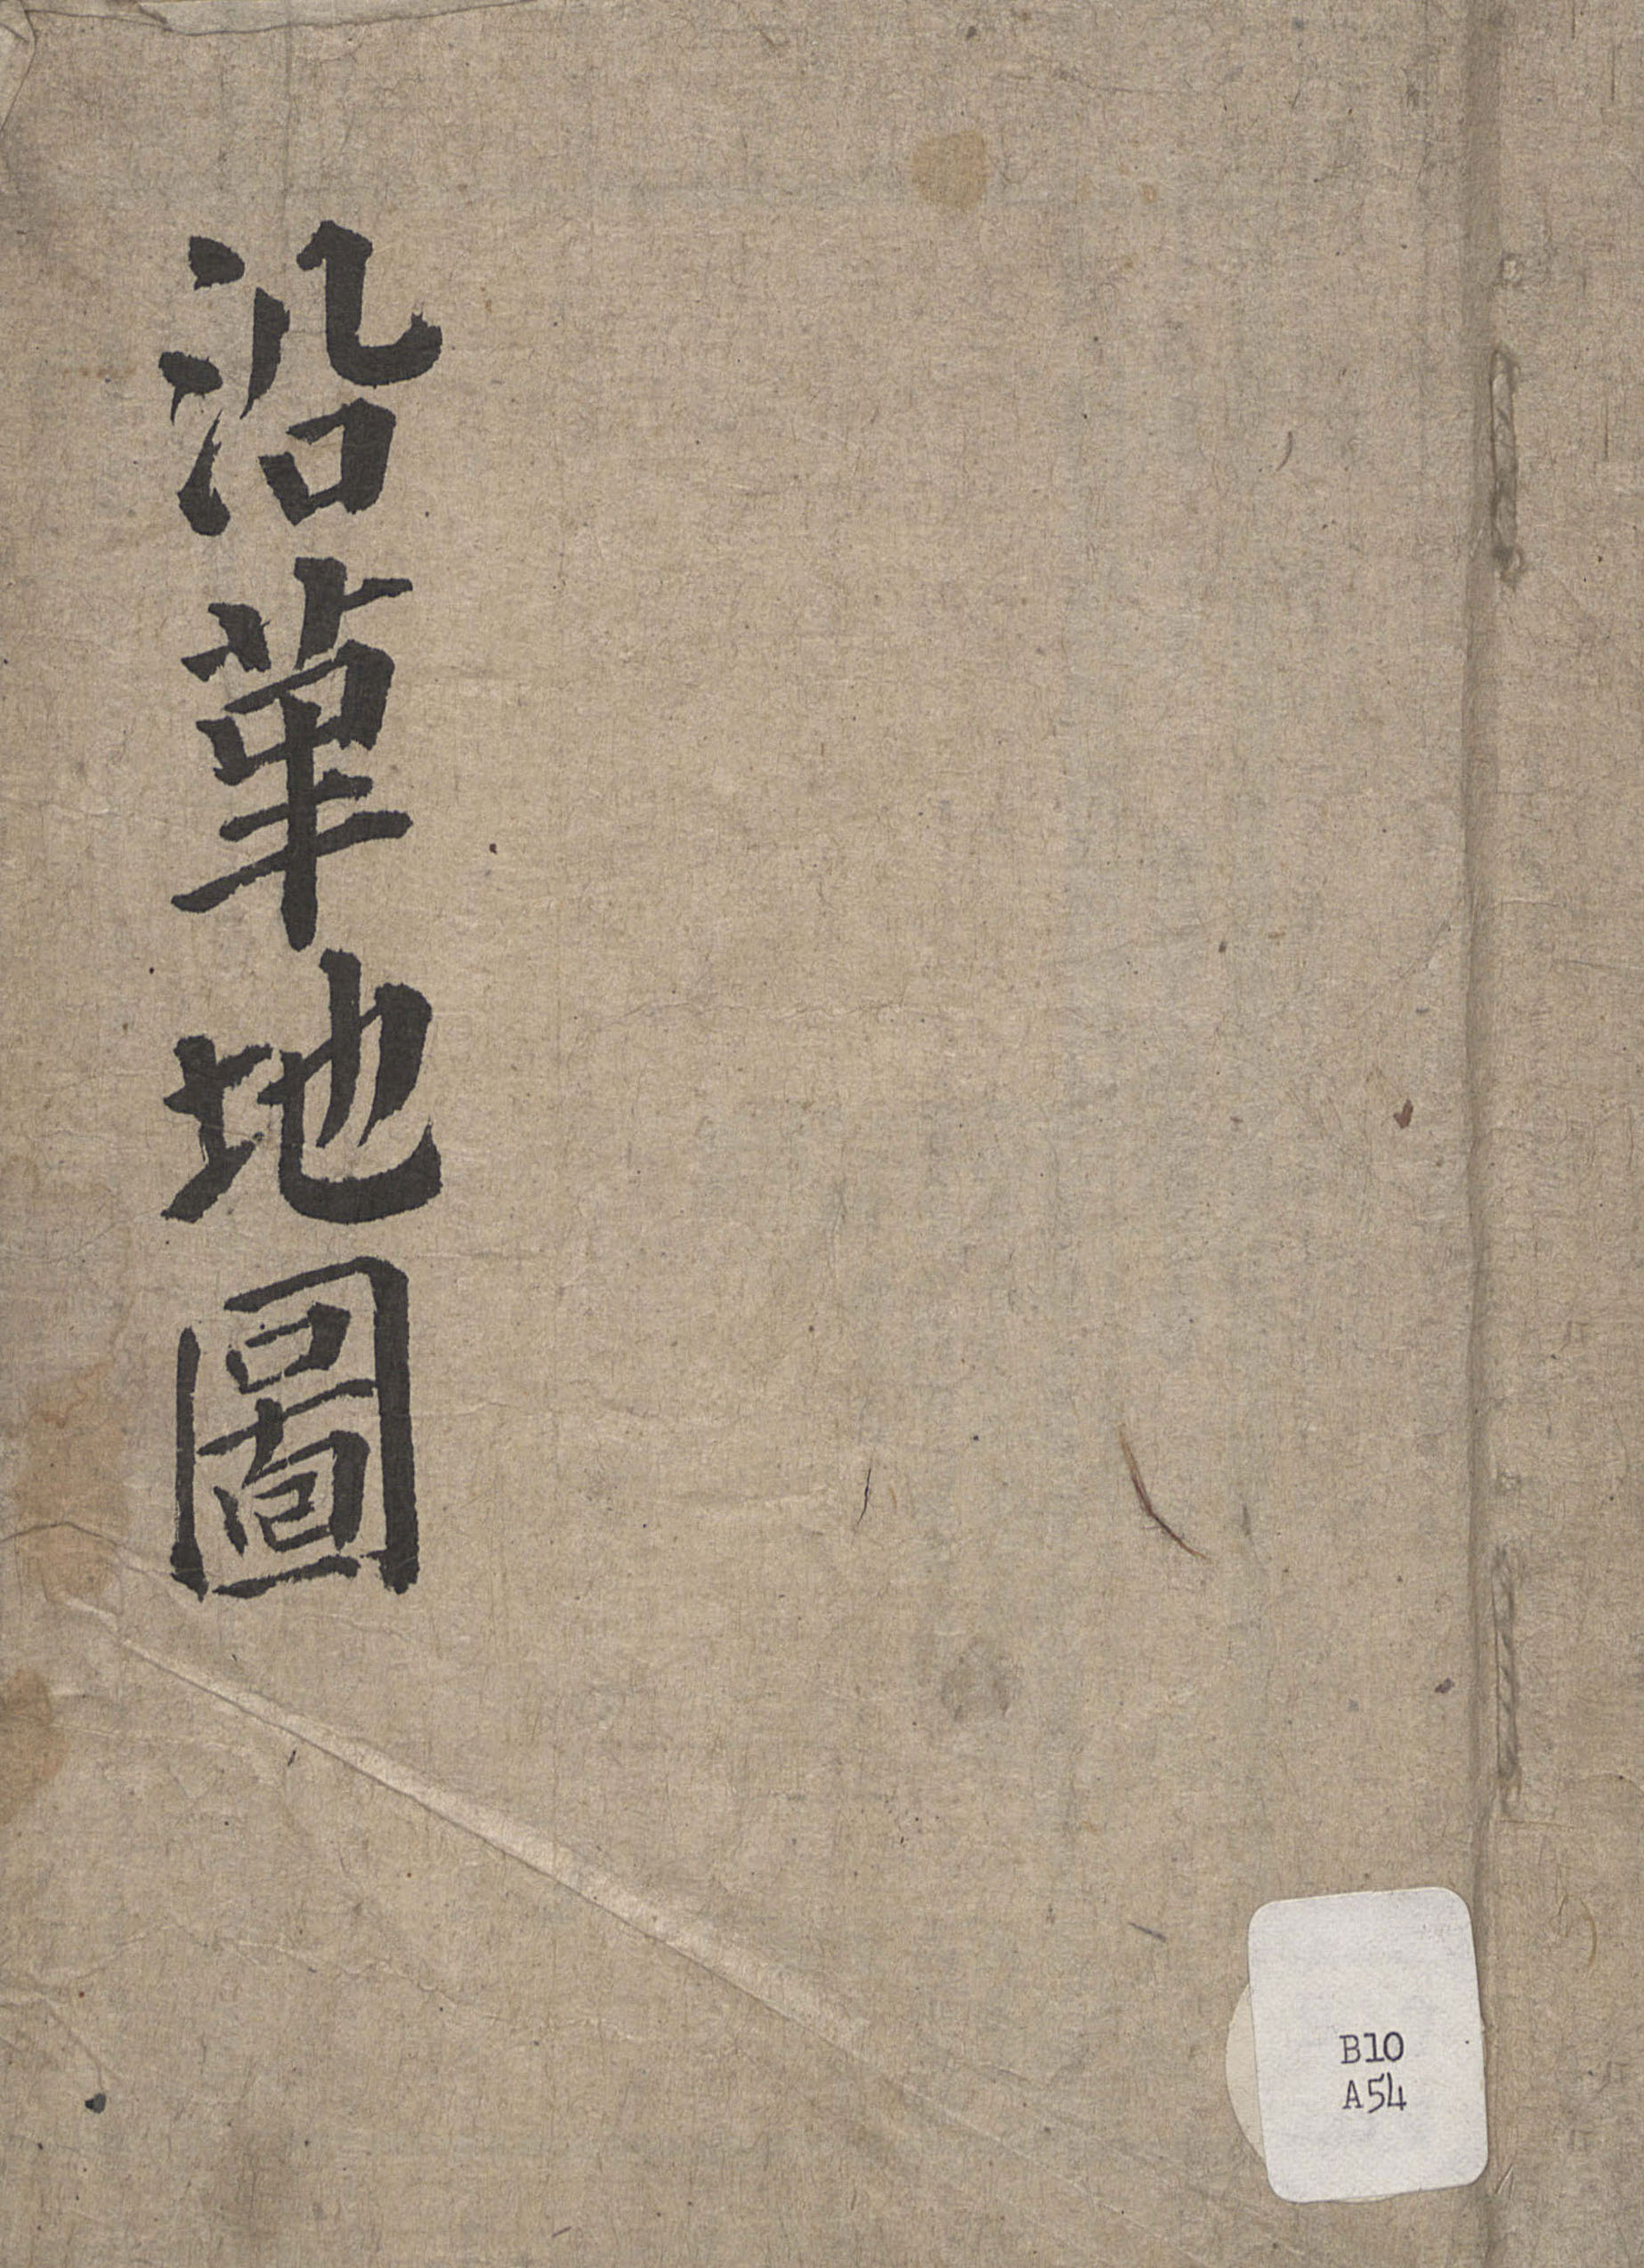 沿革地圖
B10
A54